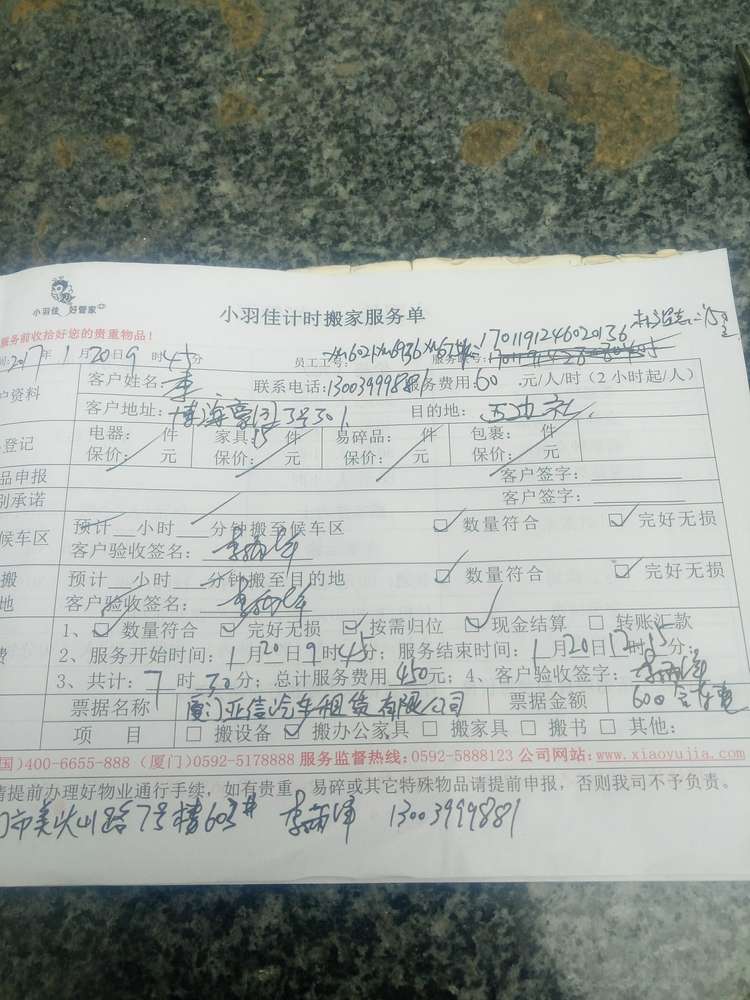 小羽佳 好管家
小羽佳计时搬家服务单
服务前收拾好您的贵重物品！
2017年1月20日9时45分 员工工号： 服务账号：170119124602013б
户资料 客户姓名：李 联系电话：13003999881 服务费用：60 元/人/时（2小时起/人）
客户地址：3号301 目的地：
登记 电器： 件 家具：15件 易碎品： 件 包裹： 件
保价： 元 保价： 元 保价： 元 保价： 元
品申报 客户签字：
别承诺 客户签字：
候车区 预计__小时__分钟搬至候车区 ☑数量符合 ☑完好无损
客户验收签名：
搬 预计__小时__分钟搬至目的地 ☑数量符合 ☑完好无损
地 客户验收签名：
1、☑数量符合 ☑完好无损 ☑按需归位 ☑现金结算 □转账汇款
费 2、服务开始时间：1月20日9时45分；服务结束时间：1月20日17时15分；
3、共计：7时30分；总计服务费用450元；4、客户验收签字：
票据名称 厦门亚信汽车租赁有限公司 票据金额 600
项 目 □搬设备 ☑搬办公家具 □搬家具 □搬书 □其他：
国）400-6655-888（厦门）0592-5178888 服务监督热线：0592-5888123 公司网站：www.xiaoyujia.com
请提前办理好物业通行手续，如有贵重、易碎或其它特殊物品请提前申报，否则我司不予负责。
门市美头山路7号楼603# 13003999881